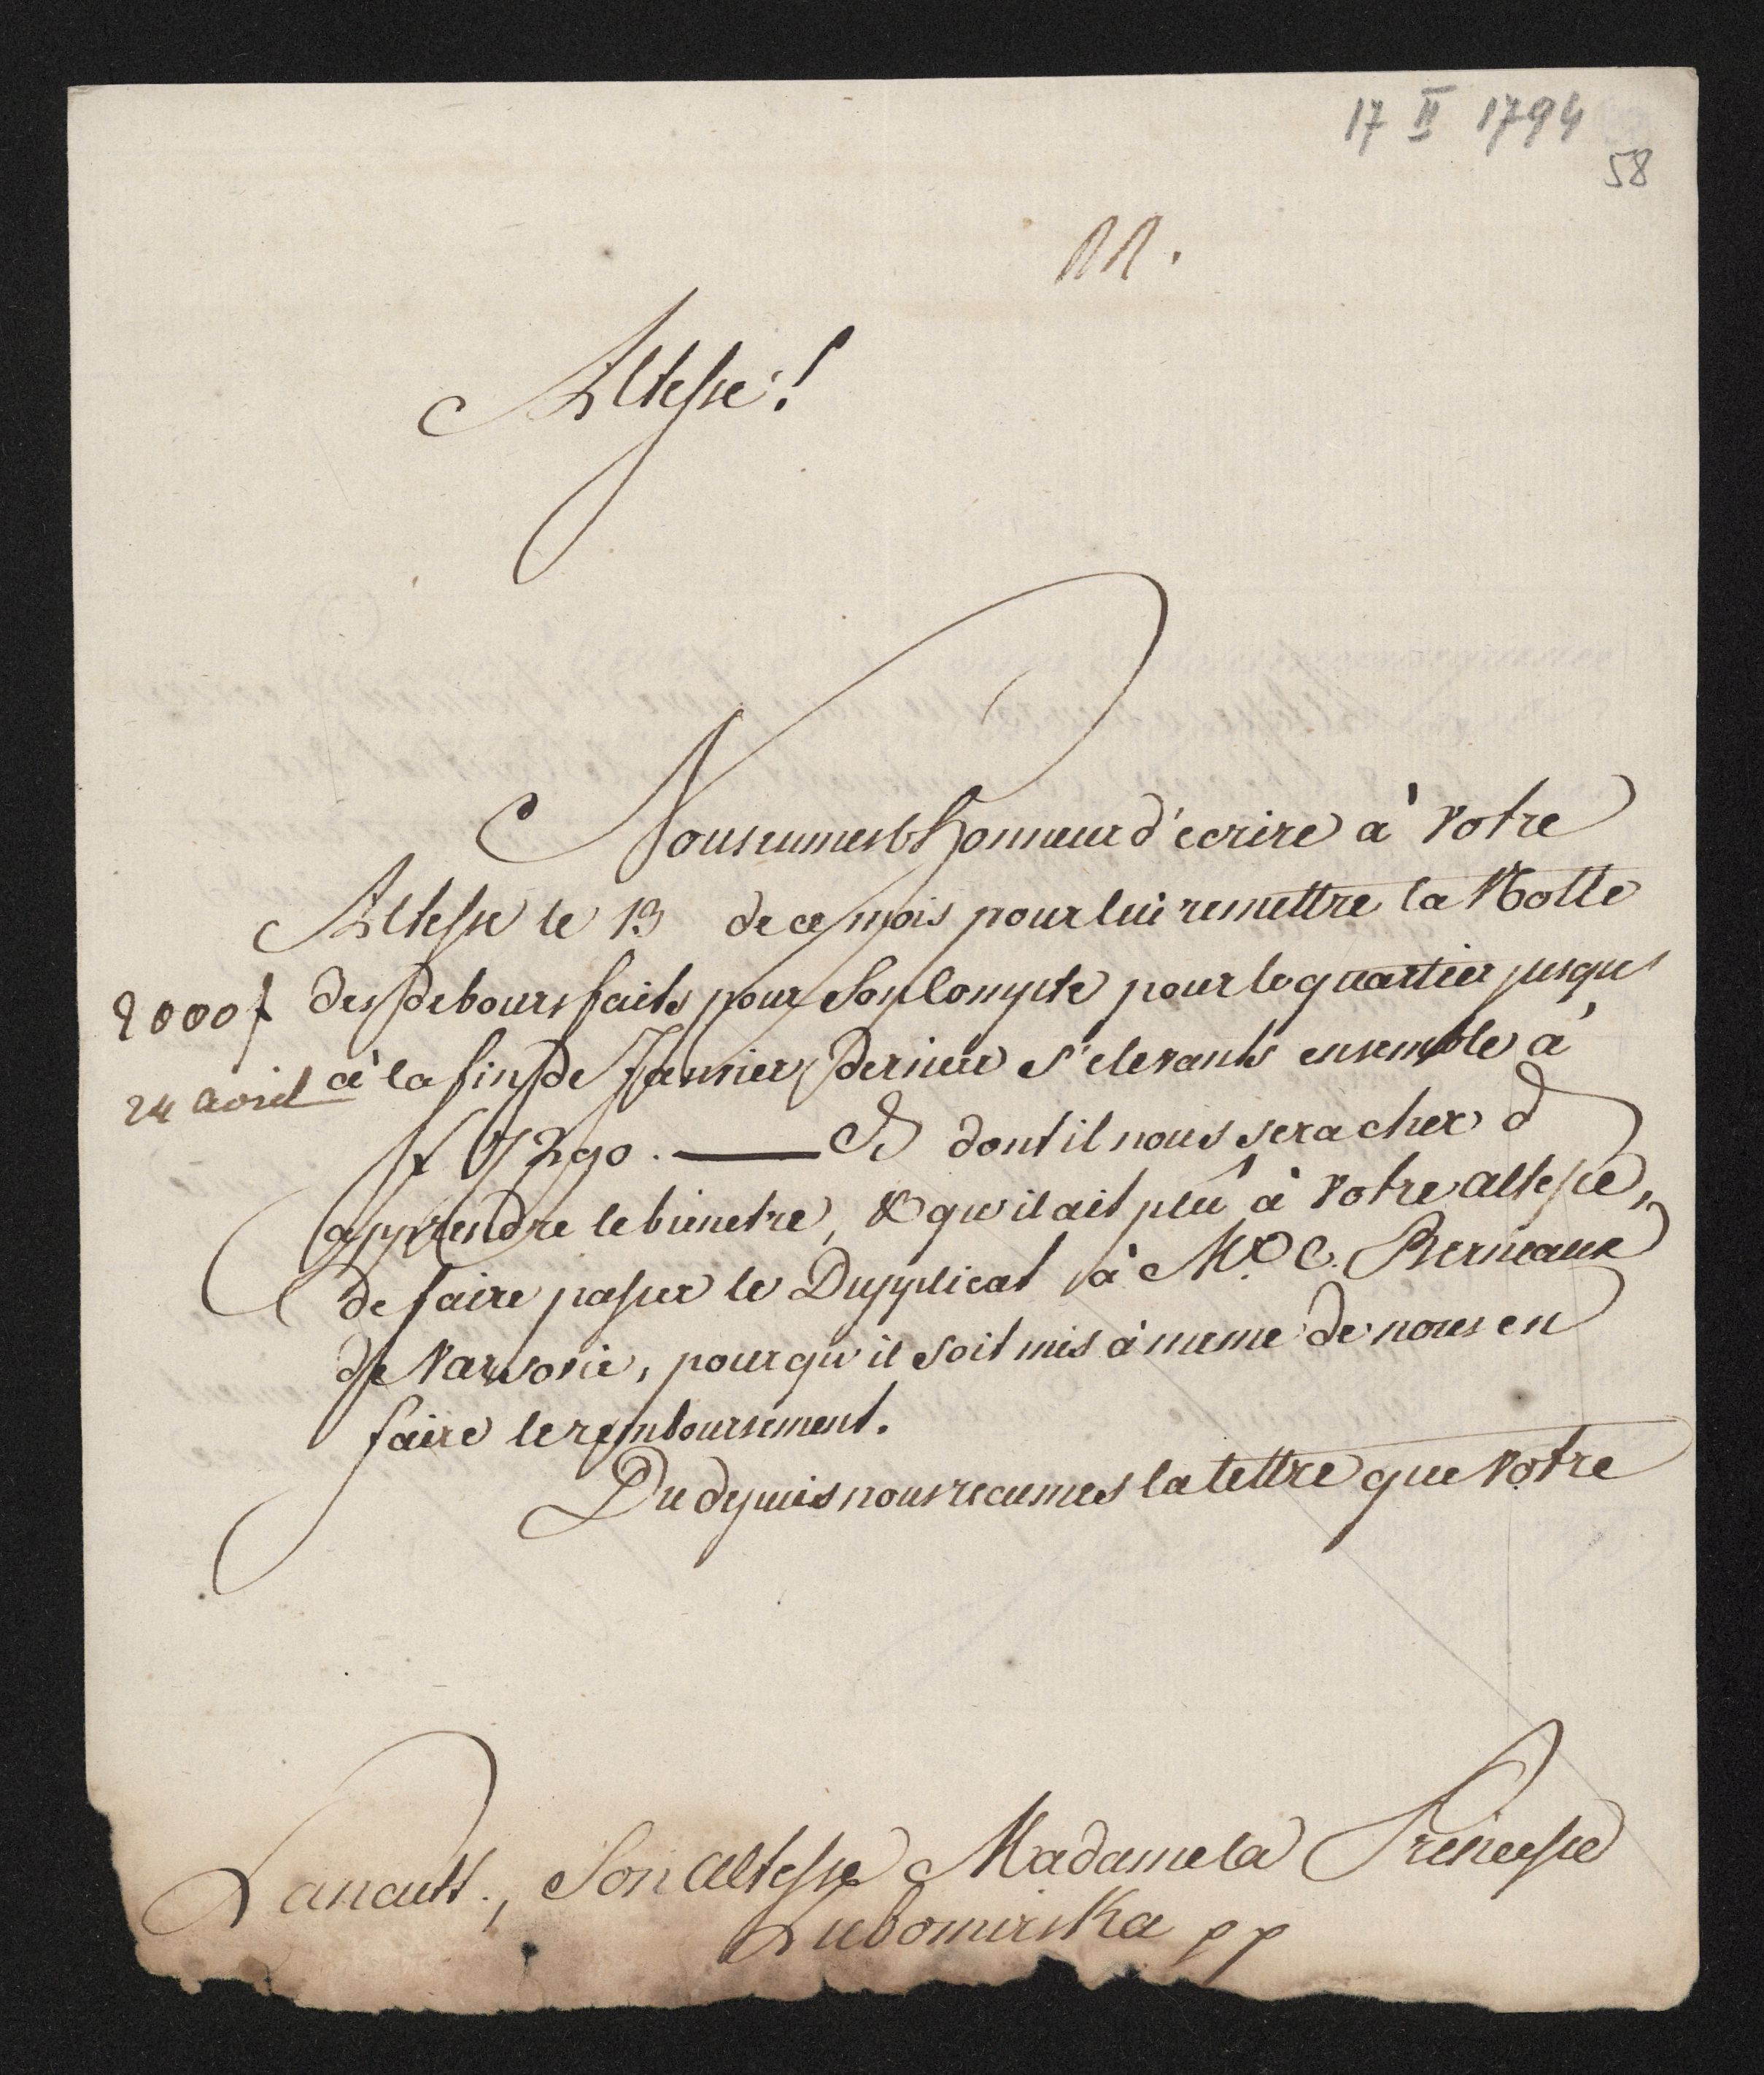 17 II 1794
58
M.
Altesse!
Nous eumes l'honneur d'ecrire à Votre
Altesse le 13 de ce mois pour lui remettre la Notte
2000 f des debours faits pour Son Compte pour le quartier jusques
24 avril à la fin de Janvier dernier s'elevants ensemble à
f 7290. dont il nous sera cher d
apprendre le bienetre, & qu'il ait plû à Votre Altesse,
de faire passer le Dupplicat à Mr. C. Berneaux
de Varsovie, pour qu'il soit mis à meme de nous en
faire le remboursement.
Du depuis nous recumes la lettre que Votre
Lancutt., Son Altesse Madame la Princesse
Lubomirska pp